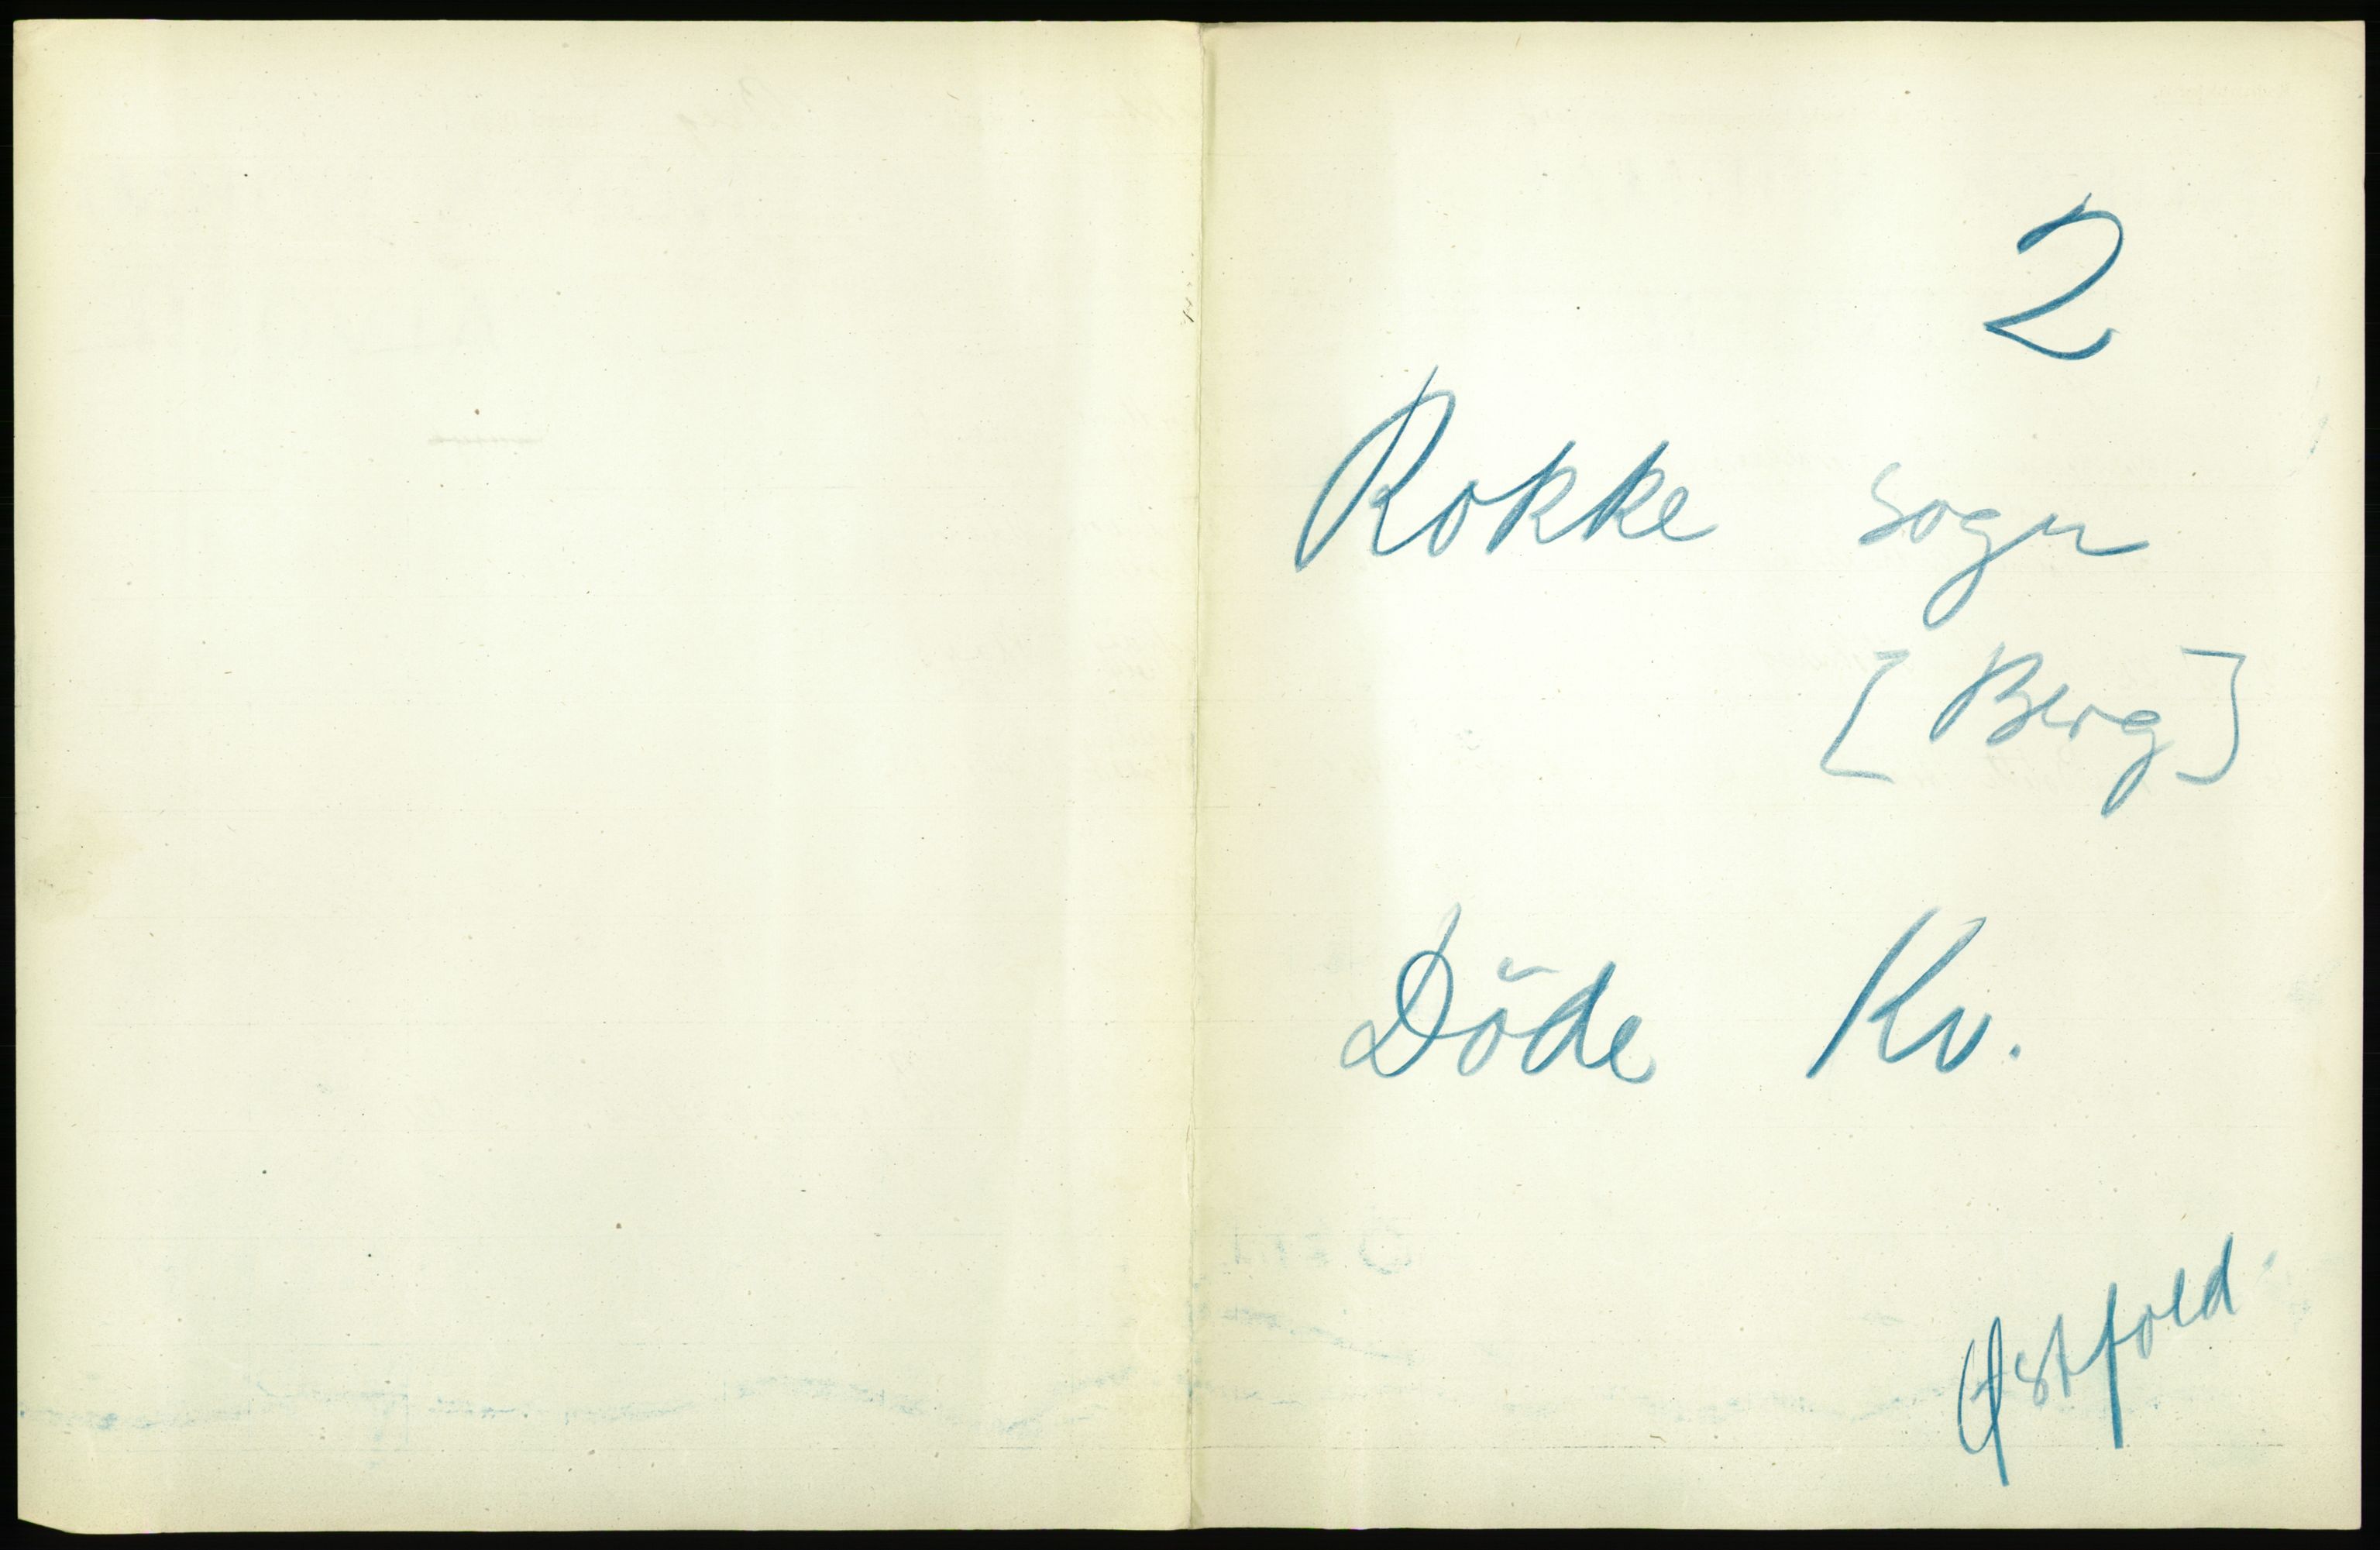 2
Rokke sogn
[Berg]
Döde Kv.
Østfold